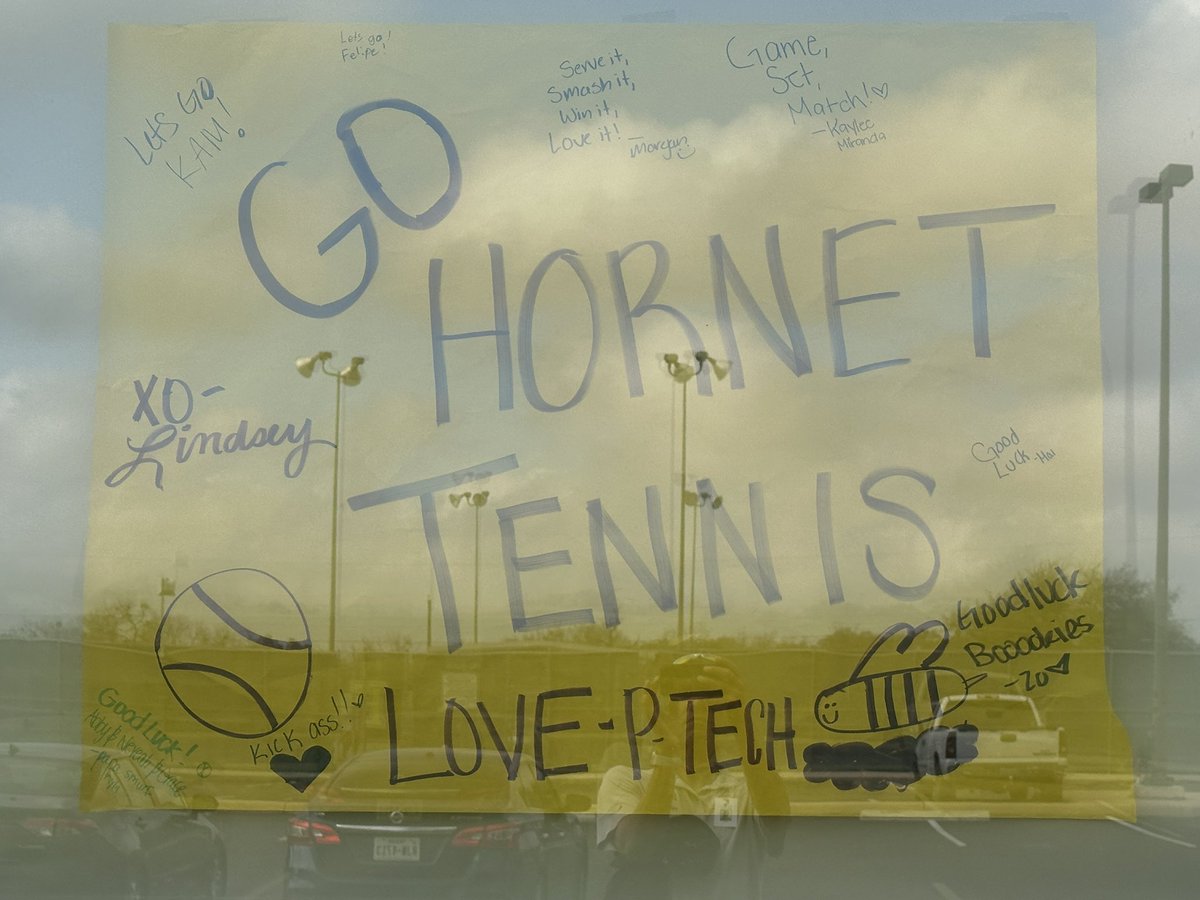 Lets go!
Felipe!
LETS GO
KAM!
Serve it,
Smash it,
Win it,
Love it!
- Morgan
Game,
Set,
Match!
- Kaylee
Miranda
GO
HORNET
TENNIS
XO-
Lindsey
Good
Luck -
Goodluck
Booookies
- Zo
KICK ass!!
GOOD LUCK!
LOVE-P-TECH